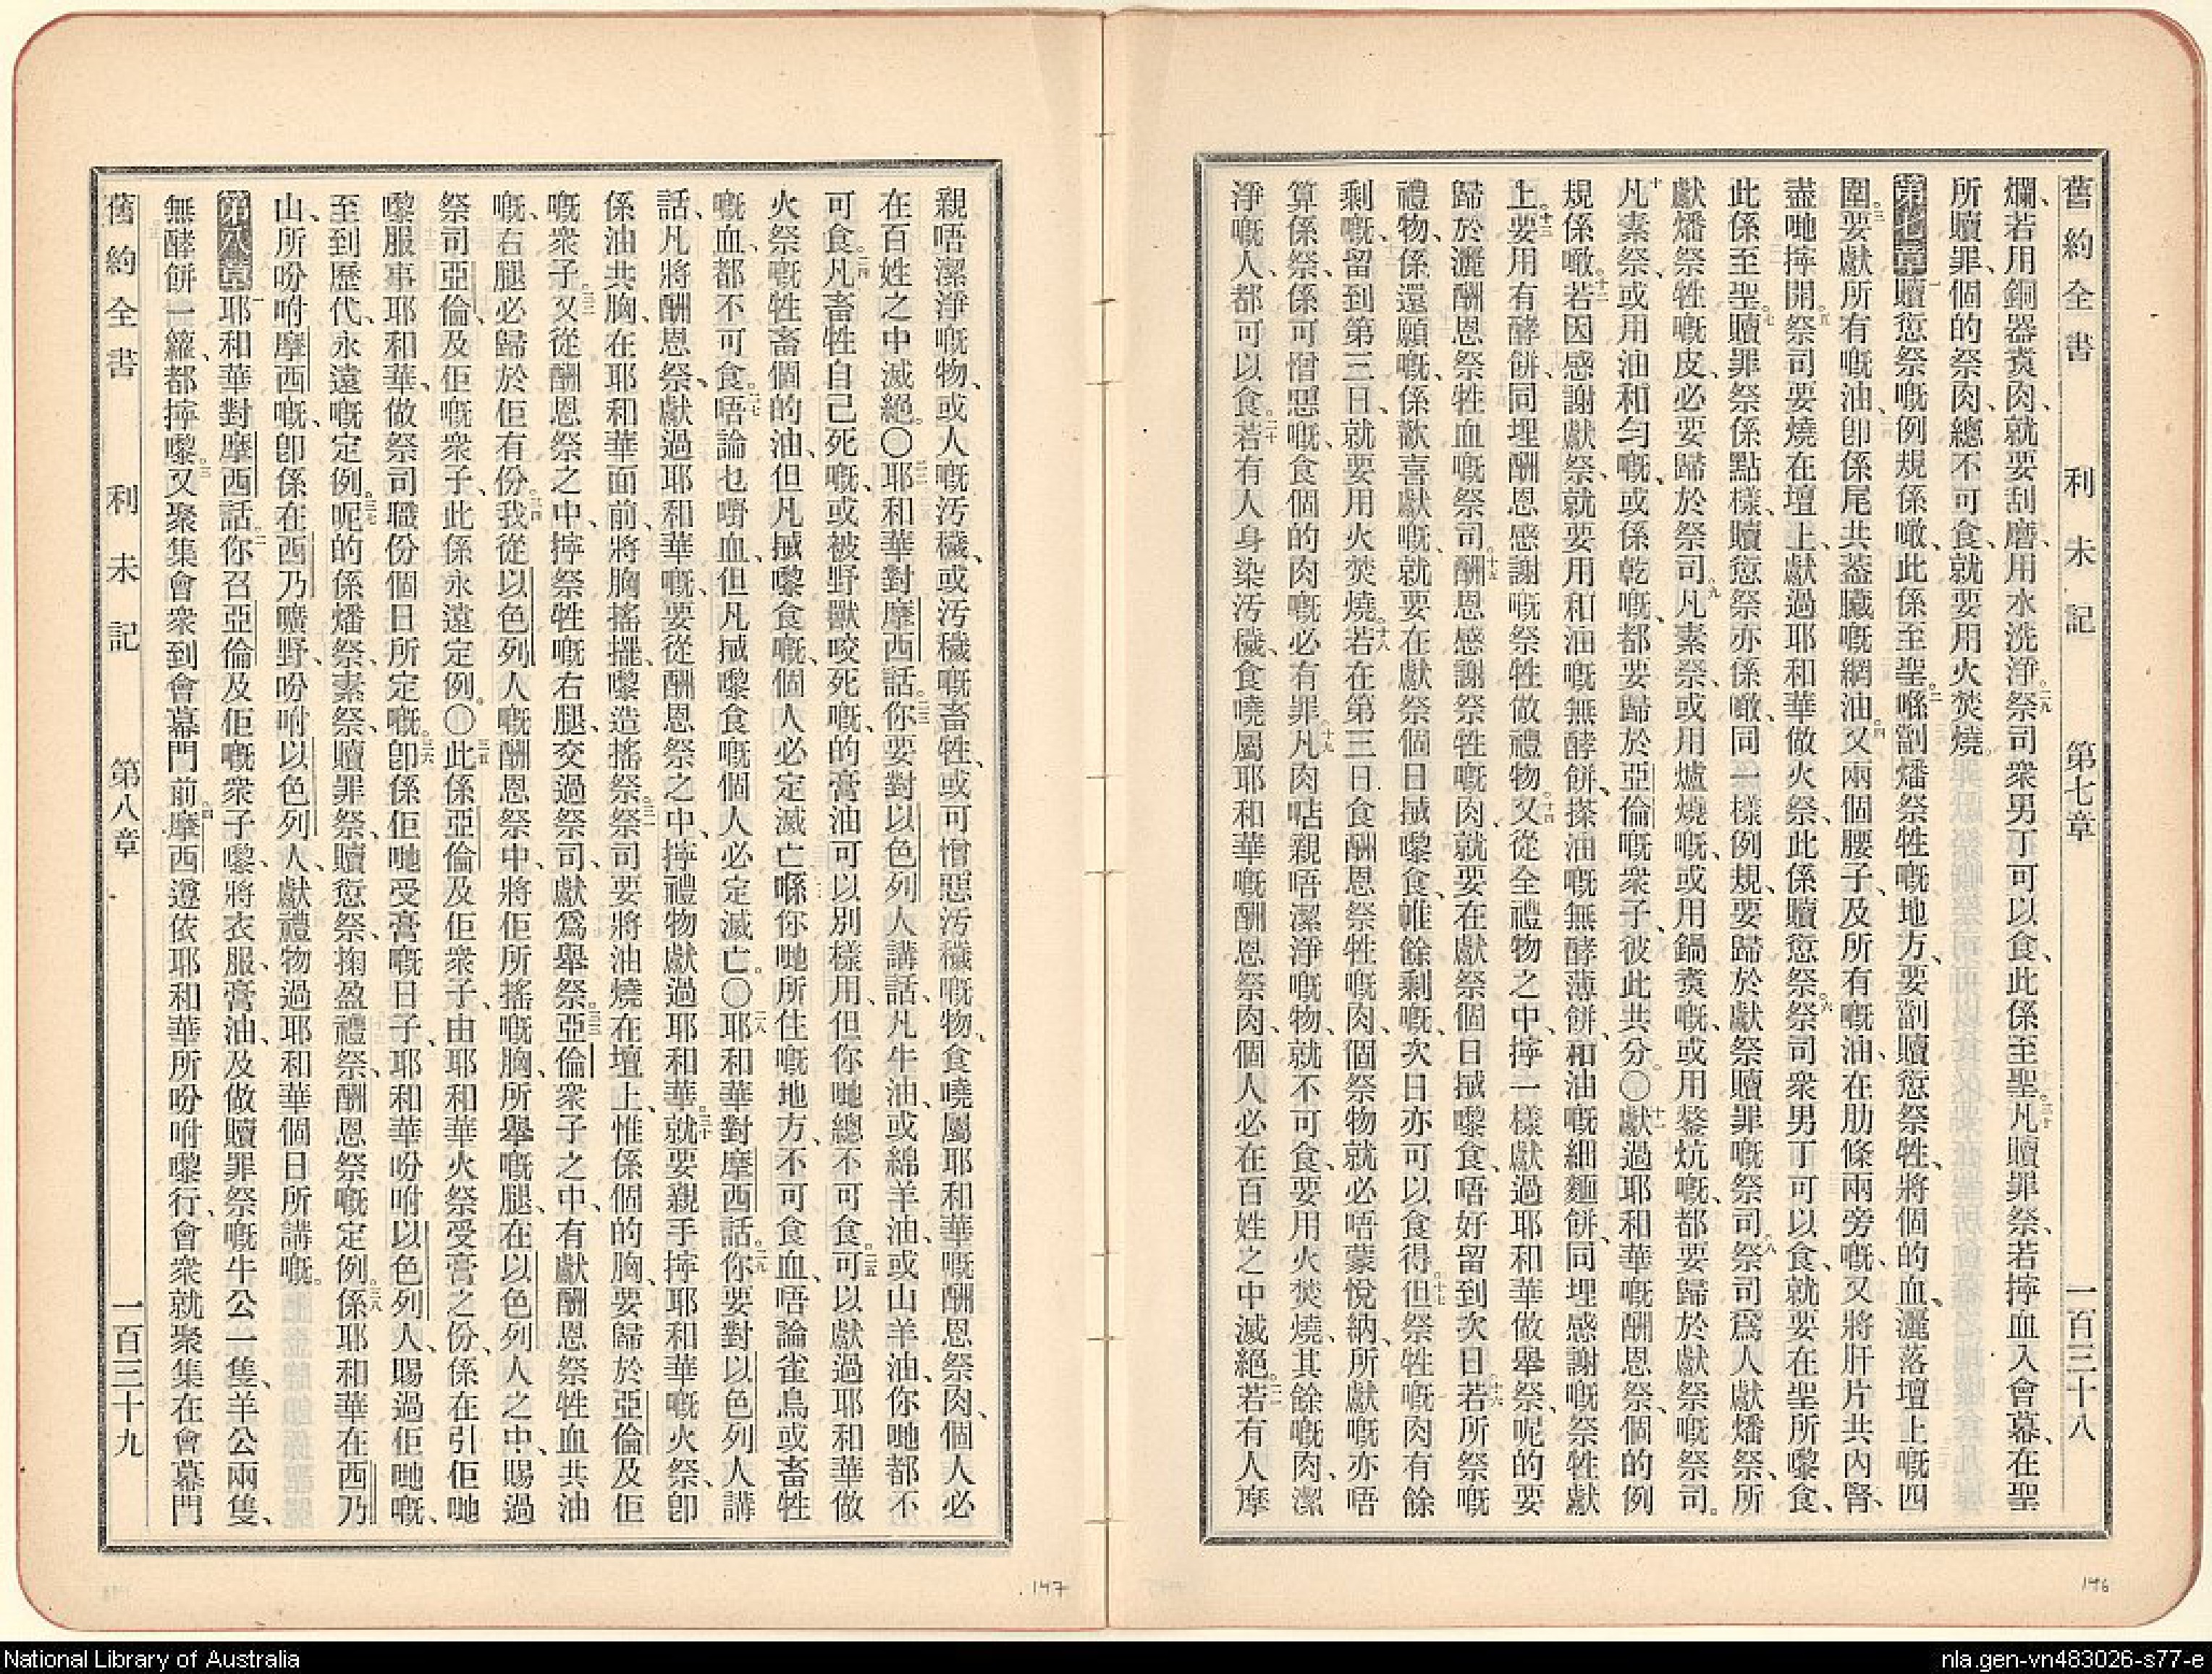 舊約全書　利未記　第七章　一百三十八
爛、若用銅器煑肉、就要刮磨、用水洗淨。二九祭司衆男丁可以食、此係至聖。三十凡贖罪祭、若擰血入會幕、在聖
所贖罪、個的祭肉、總不可食、就要用火焚燒。
第七章一贖愆祭嘅例規係噉、此係至聖。二喺劏燔祭牲嘅地方、要劏贖愆祭牲、將個的血、灑落壇上嘅四
圍。三要獻所有嘅油、卽係尾共葢臟嘅網油。四又兩個腰子、及所有嘅油、在肋條兩旁嘅、又將肝片共內腎、
盡哋擰開。五祭司要燒在壇上、獻過耶和華做火祭、此係贖愆祭。六祭司衆男丁可以食、就要在聖所嚟食、
此係至聖。七贖罪祭係點樣、贖愆祭亦係噉、同一樣例規、要歸於獻祭贖罪嘅祭司。八祭司爲人獻燔祭、所
獻燔祭牲嘅皮、必要歸於祭司。九凡素祭、或用爐燒嘅、或用鍋煑嘅、或用鏊炕嘅、都要歸於獻祭嘅祭司。
十凡素祭、或用油和勻嘅、或係乾嘅、都要歸於亞倫嘅衆子、彼此共分。〇十一獻過耶和華嘅酬恩祭、個的例
規係噉。十二若因感謝獻祭、就要用和油嘅無酵餅、搽油嘅無酵薄餅、和油嘅細麵餅、同埋感謝嘅祭牲獻
上。十三要用有酵餅、同埋酬恩感謝嘅祭牲做禮物。十四又從全禮物之中、擰一樣獻過耶和華做舉祭、呢的要
歸於灑酬恩祭牲血嘅祭司。十五酬恩感謝祭牲嘅肉、就要在獻祭個日搣嚟食、唔好留到次日。十六若所祭嘅
禮物、係還願嘅、係歡喜獻嘅、就要在獻祭個日搣嚟食、惟餘剩嘅、次日亦可以食得。十七但祭牲嘅肉有餘
剩嘅、留到第三日、就要用火焚燒。十八若在第三日食酬恩祭牲嘅肉、個祭物就必唔蒙悅納、所獻嘅亦唔
算係祭、係可憎惡嘅、食個的肉嘅必有罪。十九凡肉啱親唔潔淨嘅物、就不可食、要用火焚燒、其餘嘅肉、潔
淨嘅人、都可以食。二十若有人身染汚穢、食嘵屬耶和華嘅酬恩祭肉、個人必在百姓之中滅絕。二一若有人摩
親唔潔淨嘅物、或人嘅汚穢、或汚穢嘅畜牲、或可憎惡汚穢嘅物、食嘵屬耶和華嘅酬恩祭肉、個人必
在百姓之中滅絕。〇二二耶和華對摩西話。二三你要對以色列人講話、凡牛油、或綿羊油、或山羊油、你哋都不
可食。二四凡畜牲自己死嘅、或被野獸咬死嘅、的膏油可以別樣用、但你哋總不可食。二五可以獻過耶和華做
火祭嘅牲畜個的油、但凡搣嚟食嘅、個人必定滅亡。二六喺你哋所住嘅地方、不可食血、唔論雀鳥或畜牲
嘅血、都不可食。二七唔論乜嘢血、但凡搣嚟食嘅個人必定滅亡。〇二八耶和華對摩西話。二九你要對以色列人講
話、凡將酬恩祭、獻過耶和華嘅、要從酬恩祭之中、擰禮物獻過耶和華。三十就要親手擰耶和華嘅火祭、卽
係油共胸、在耶和華面前、將胸搖擺、嚟造搖祭。三一祭司要將油燒在壇上、惟係個的胸、要歸於亞倫及佢
嘅衆子。三二又從酬恩祭之中、擰祭牲嘅右腿、交過祭司、獻爲舉祭。三三亞倫衆子之中、有獻酬恩祭牲血共油
嘅、右腿必歸於佢有份。三四我從以色列人嘅酬恩祭中、將佢所搖嘅胸、所舉嘅腿、在以色列人之中、賜過
祭司亞倫、及佢嘅衆子、此係永遠定例。〇三五此係亞倫及佢衆子、由耶和華火祭受膏之份、係在引佢哋
嚟服事耶和華、做祭司職份個日所定嘅。三六卽係佢哋受膏嘅日子、耶和華吩咐以色列人、賜過佢哋嘅、
至到歷代、永遠嘅定例。三七呢的係燔祭、素祭、贖罪祭、贖愆祭、掬盈禮祭、酬恩祭嘅定例。三八係耶和華在西乃
山、所吩咐摩西嘅、卽係在西乃曠野、吩咐以色列人、獻禮物過耶和華個日所講嘅。
第八章一耶和華對摩西話。二你召亞倫及佢嘅衆子嚟、將衣服、膏油、及做贖罪祭嘅牛公一隻、羊公兩隻、
無酵餅一籮、都擰嚟。三又聚集會衆到會幕門前。四摩西遵依耶和華所吩咐嚟行、會衆就聚集在會幕門
舊約全書　利未記　第八章　一百三十九
146
147
National Library of Australia
nla.gen-vn483026-s77-e